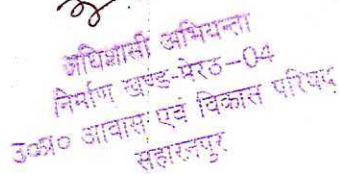 अधिशासी अभियन्ता
निर्माण खण्ड-मेरठ-04
उ०प्र० आवास एवं विकास परिषद
सहारनपुर